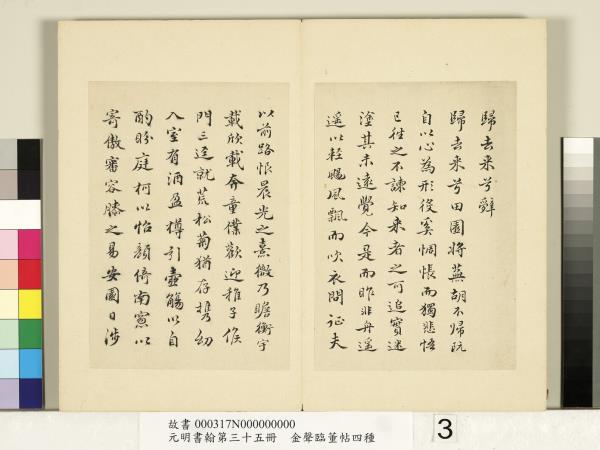 歸去來兮辭
歸去來兮田園將蕪胡不歸既
自以心為形役奚惆悵而獨悲悟
已往之不諫知來者之可追實迷
塗其未遠覺今是而昨非舟遥
遥以輕颺風飄而吹衣問征夫
以前路恨晨光之熹微乃瞻衡宇
載欣載奔童僕歡迎稚子候
門三逕就荒松菊猶存携幼
入室有酒盈樽引壺觴以自
酌眄庭柯以怡顏倚南窻以
寄傲審容膝之易安園日涉
故書 000317N000000000
元明書翰第三十五冊 金聲臨董帖四種
3